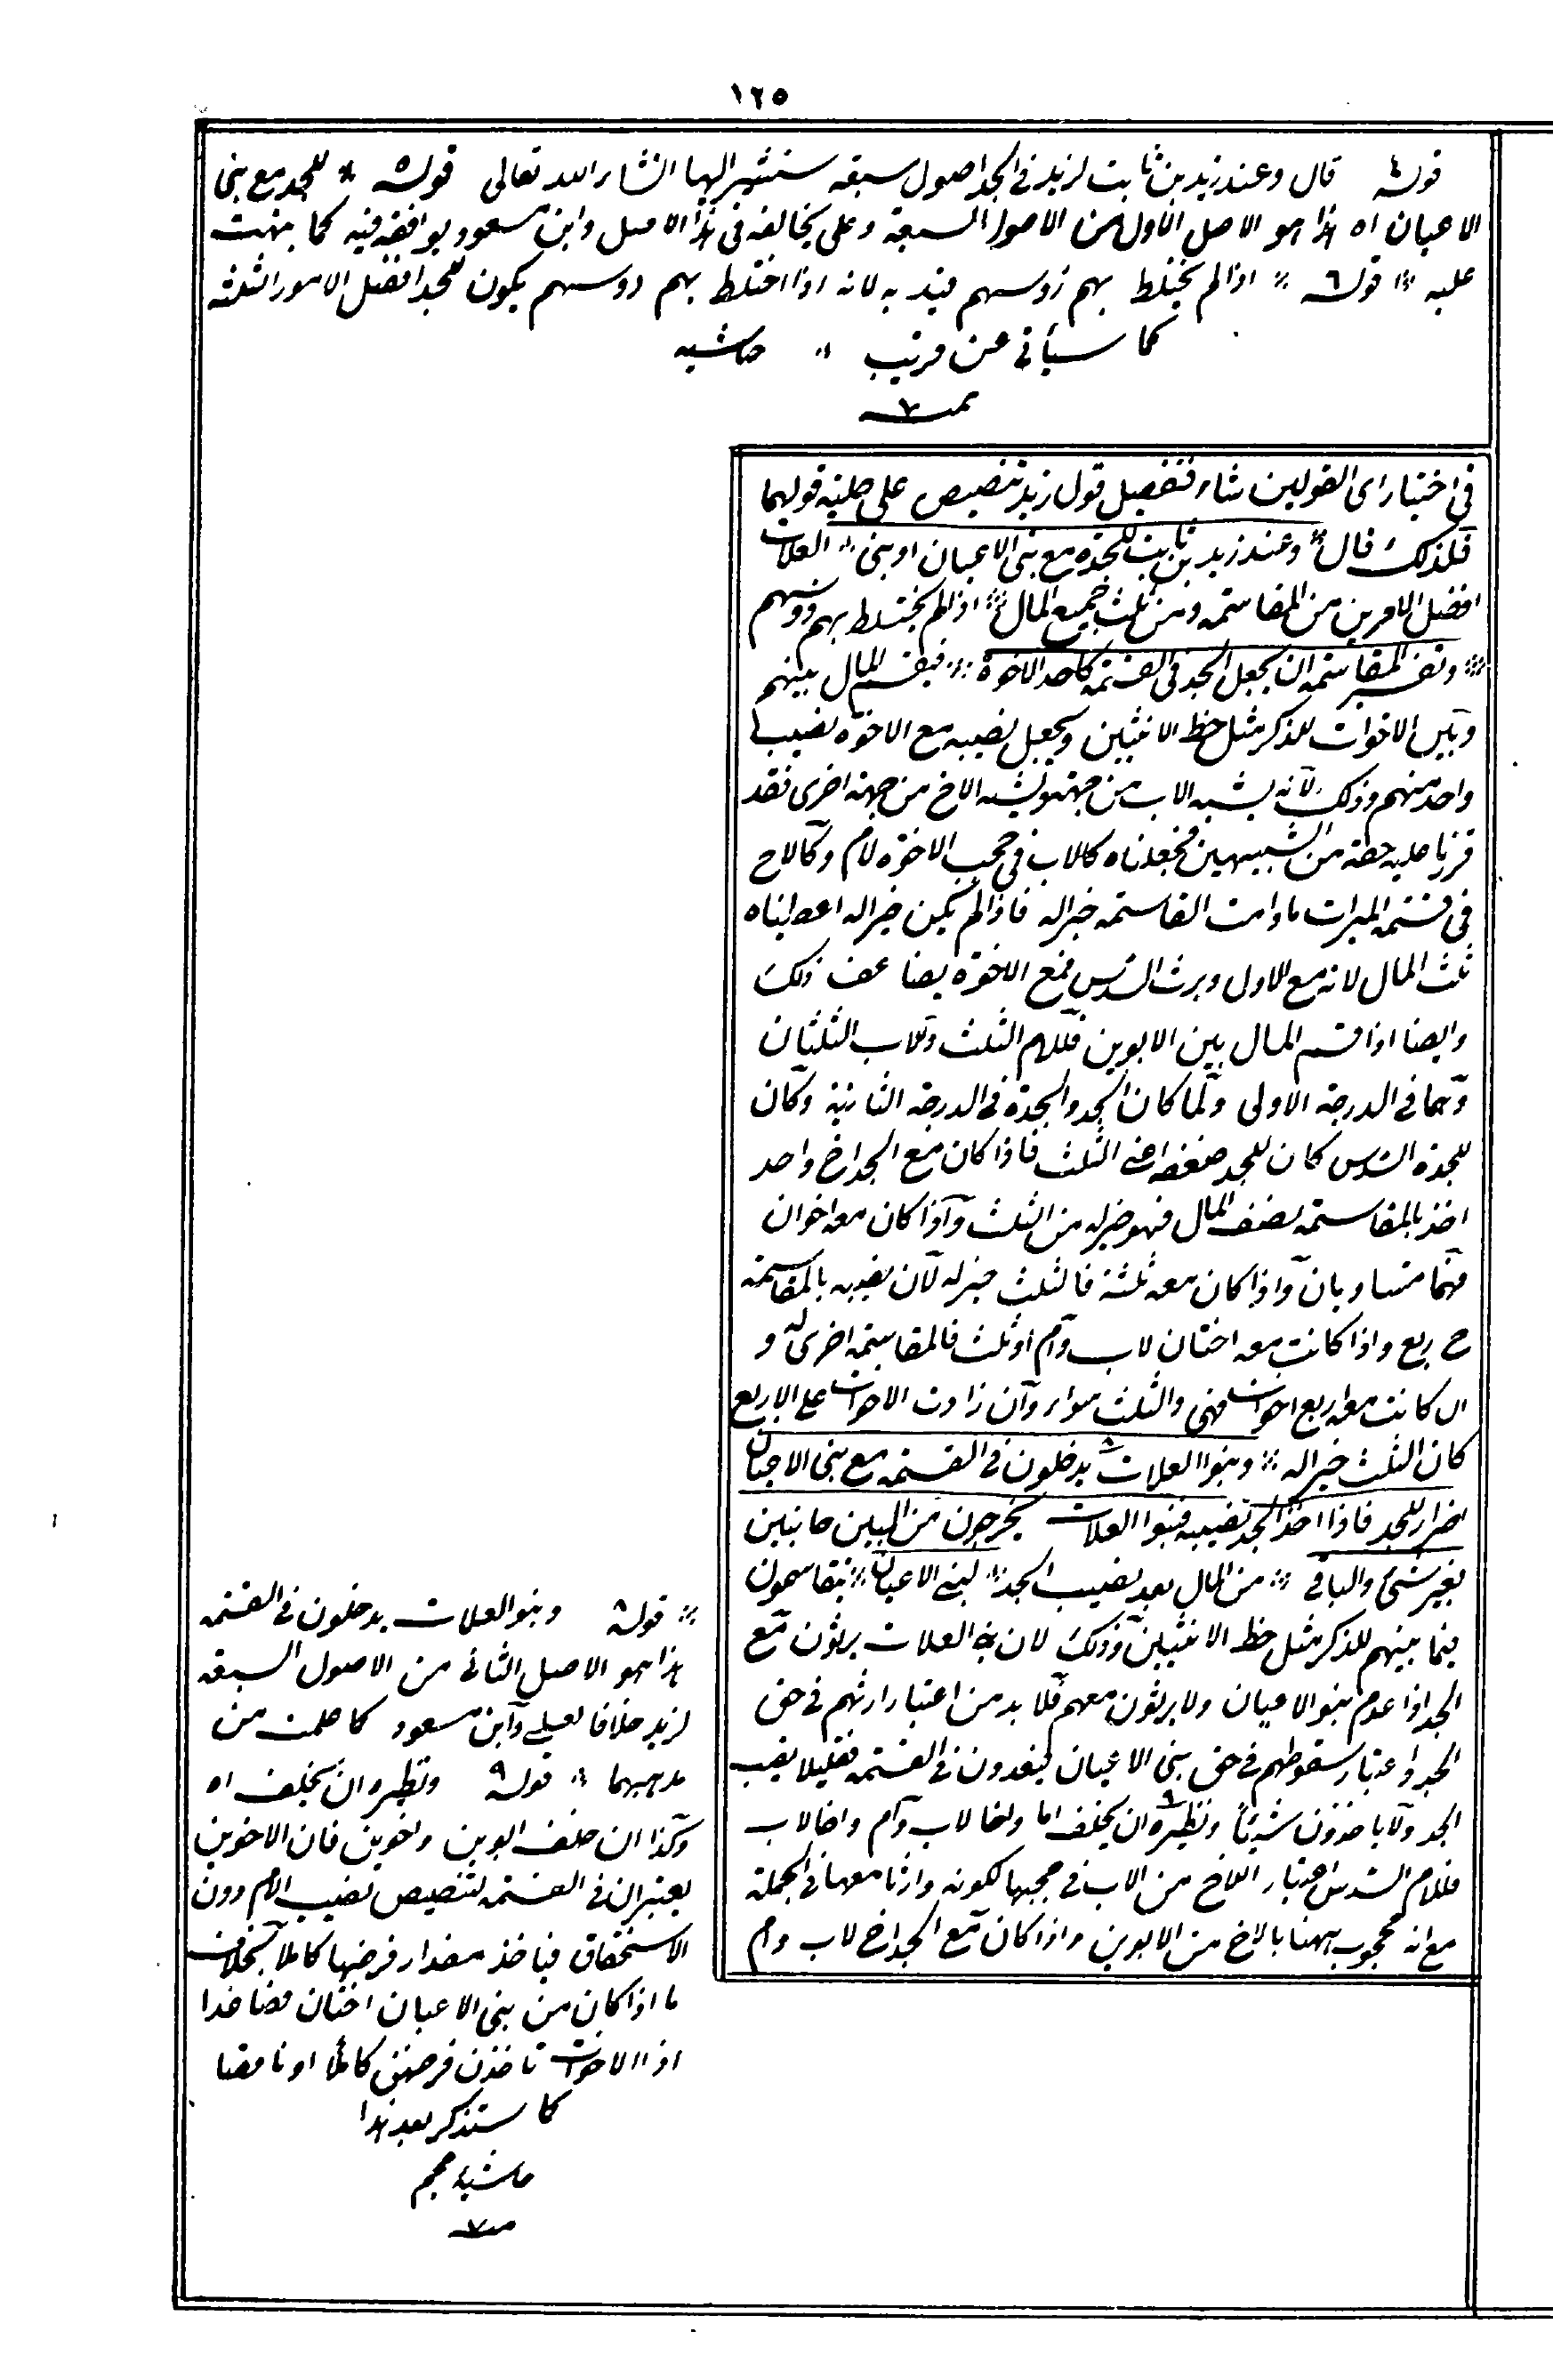 ١٢٥
قوله ٤ قال وعند زيد بن ثابت لزيد في الجد اصول سبعة سنشير اليها انشاء الله تعالى قوله ٥ للجد مع بني
الاعيان اه هذا هو الاصل الاول من الاصول السبعة وعلي يخالفه في هذا الاصل وابن مسعود يوافقه فيه كما
عليه قوله ٦ اذا لم يختلط بهم ذوسهم قيد به لانه اذا اختلط بهم ذوسهم يكون للجد افضل الامور الثلثة
كما سيأتي عن قريب حاشيه
في اختيار اى القولين شاء فتفصيل قول زيد تنصيص على قوليهما
فلذلك قال وعند زيد بن ثابت للجد مع بني الاعيان او بني العلات
افضل الامرين من المقاسمة ومن ثلث جميع المال اذا لم يختلط بهم ذوسهم
وتفسير المقاسمة ان يجعل الجد في القسمة كاحد الاخوة فيقسم المال بينهم
وبين الاخوات للذكر مثل حظ الانثيين ويجعل نصيبه مع الاخوة نصيب
واحد منهم وذلك لانه يشبه الاب من جهة ويشبه الاخ من جهة اخرى فقد
قررنا عليه حصة من الشبيهين فجعلناه كالاب في حجب الاخوة لام وكالاخ
في قسمة الميراث ما دامت القاسمة خيرا له فاذا لم يكن خيرا له اعطيناه
ثلث المال لانه مع الاول ويرث السدس فمع الاخوة يضاعف ذلك
وايضا اذا قسم المال بين الابوين فللام الثلث وللاب الثلثان
وهما في الدرجة الاولى ولما كان الجد والجدة في الدرجة الثانية وكان
للجدة السدس كان للجد ضعفه اعني الثلث فاذا كان مع الجد اخ واحد
اخذ بالمقاسمة نصف المال فهو خير له من الثلث واذا كان معه اخوان
فهما متساويان واذا كان معه ثلثة فالثلث خير له لان نصيبه بالمقاسمة
ح ربع واذا كانت معه اختان لاب وام او ثلث فالمقاسمة اخرى له و
ان كانت معه اربع اخوات فهي والثلث سواء وان زادت الاخوات على الاربع
كان الثلث خيرا له وبنوا العلات ٨ يدخلون في القسمة مع بني الاعيان
اضرارا للجد فاذا اخذ الجد نصيبه فبنوا العلات يخرجون من البين خائبين
بغير شئ والباقي من المال بعد نصيب الجد لبني الاعيان يتقاسمون
فيما بينهم للذكر مثل حظ الانثيين وذلك لان بني العلات يرثون مع
الجد اذا عدم بنو الاعيان ولا يرثون معهم فلا بد من اعتبار ارثهم في حق
الجد واعتبار سقوطهم في حق بني الاعيان فيعدون في القسمة تقليلا لنصيب
الجد ولا ياخذون شيئا ونظيره ٩ ان يخلف اما واخا لاب وام واخا لاب
فللام السدس اعتبار الاخ من الاب في حجبها لكونه وارثا معها في الجملة
مع انه محجوب ههنا بالاخ من الابوين واذا كان مع الجد اخ لاب وام
قوله ٨ وبنو العلات يدخلون في القسمة
هذا هو الاصل الثاني من الاصول السبعة
لزيد خلافا لعلي وابن مسعود كما علمت من
مذهبهما قوله ٩ ونظيره ان يخلف اه
وكذا ان خلف ابوين واخوين فان الاخوين
يعتبران في القسمة لتنقيص نصيب الام دون
الاستحقاق فياخذ مقدار فرضها كاملا بخلاف
ما اذا كان من بني الاعيان اختان فصاعدا
اذ الاخوات تاخذن فرضهن كاملا او ناقصا
كما ستذكر بعد هذا
حاشية عجم